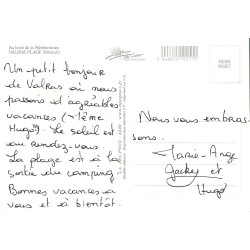 Au bord de la Méditerranée
VALRAS PLAGE (Hérault)
Un petit bonjour
de Valras où nous
passons d'agréables
vacances (même
Hugo). Le soleil est
au rendez-vous.
La plage est à la
sortie du camping
Bonnes vacances à
vous et à bientôt.
Nous vous embras-
sons.
Marie-Ange
Jackey et
Hugo